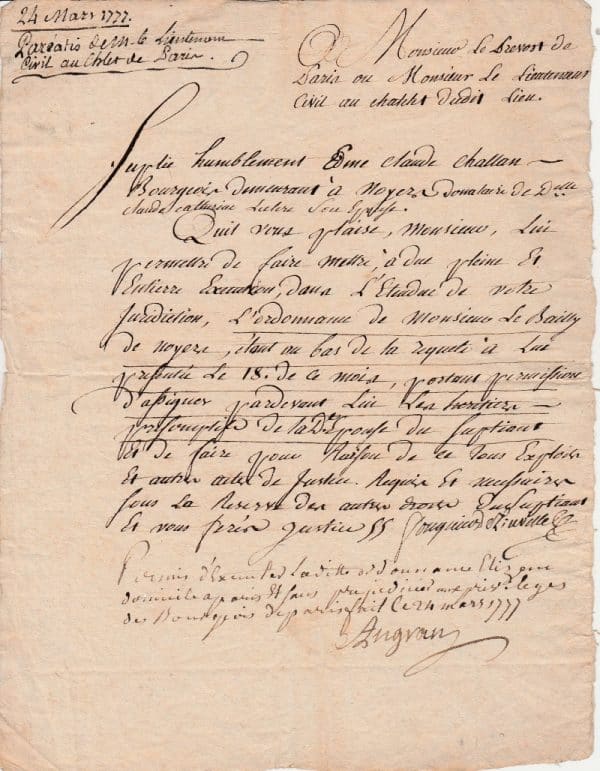 24 Mars 1777.
Paréatis de M. le Lieutenant
Civil au Chlet de Paris.
A Monsieur Le Prevost de
Paris ou Monsieur Le Lieutenant
Civil au chatelet dudit Lieu.
Suplie humblement Edme Claude Challan
Bourgeois demeurant à Noyers Donataire de Delle
Claude Catherine son Epouse.
Qu'il vous plaise, Monsieur, Lui
permettre de faire mettre, à due pleine Et
Entierre Execution, dans L'Etendue de votre
Juridiction, L'ordonnance de Monsieur Le Bailly
de Noyers, étant au bas de la requete à Lui
presentée Le 18. de ce mois, portant permission
d'assigner pardevant Lui Les heritiers
presomptifs de la De Epouse du Supliant
Et de faire pour Raison de ce Tous Exploits
Et autres actes de Justice Requis Et necessaires
sous La Reserve des autres droits du Supliant
Et vous ferés Justice
Permis d'Executer Laditte ordonnance Elisant
domicile a paris Et sans prejudicier aux privileges
des Bourgeois de paris fait Ce 24 mars 1777
Angran